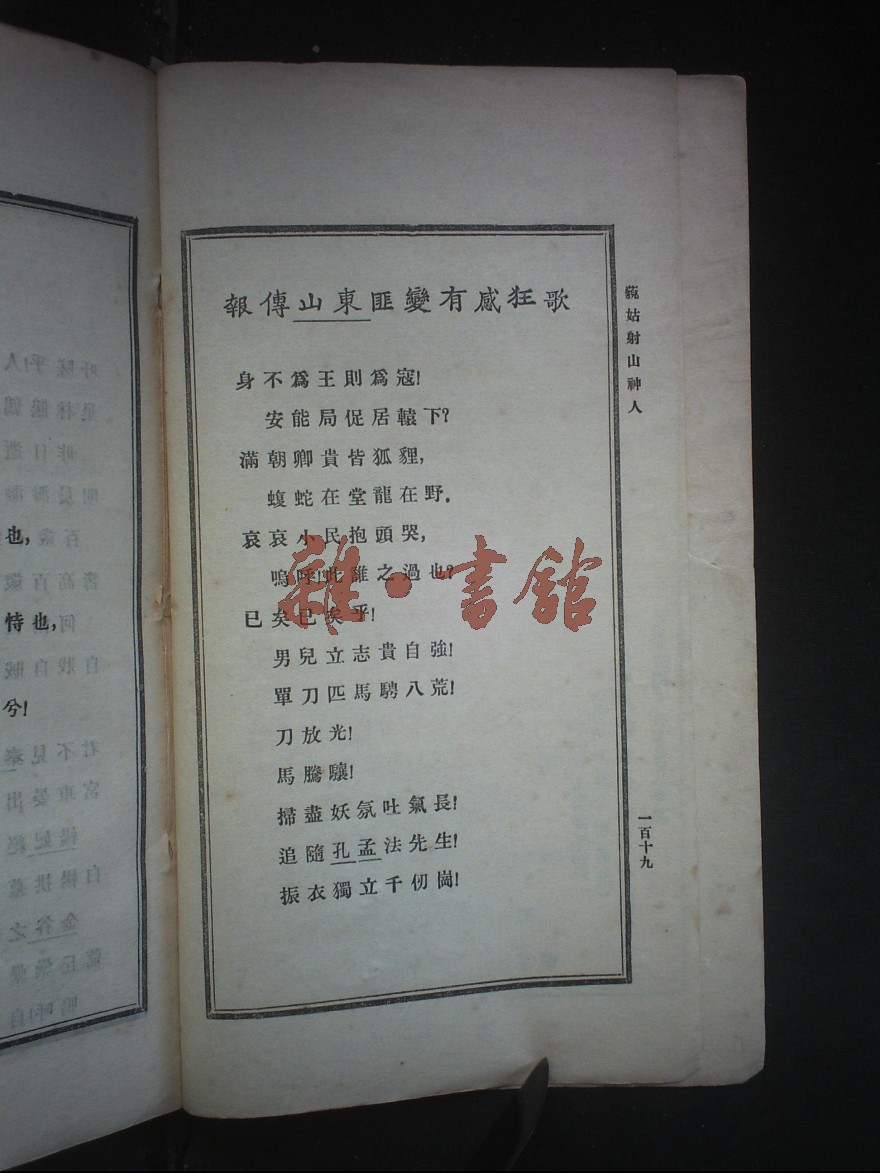 報傳山東匪變有感狂歌
身不爲王則爲寇!
安能局促居轅下?
滿朝卿貴皆狐貍,
蝮蛇在堂龍在野。
哀哀小民抱頭哭,
嗚呼!此誰之過也?
已矣已矣乎!
男兒立志貴自強!
單刀匹馬騁八荒!
刀放光!
馬騰驤!
掃盡妖氛吐氣長!
追隨孔孟法先生!
振衣獨立千仞崗!
藐姑射山神人
一百十九
也,
恃也,
兮!
雜·書館